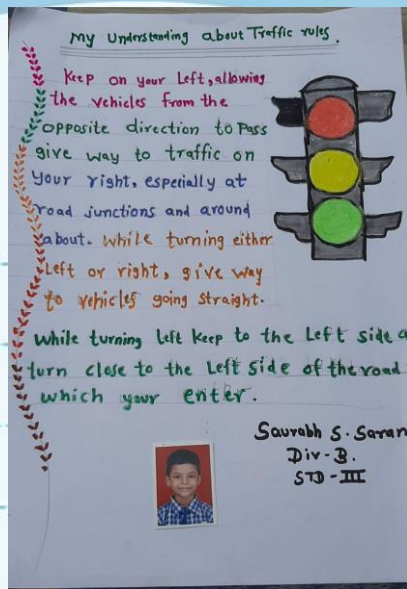 My Understanding about Traffic rules.
Keep on your Left, allowing
the vehicles from the
opposite direction to Pass
give way to traffic on
your right, especially at
road junctions and around
about. while turning either
Left or right, give way
to vehicles going straight.
While turning left keep to the Left side a
turn close to the Left side of the road
which your enter.
Saurabh S. Saran
Div-B.
STD-III